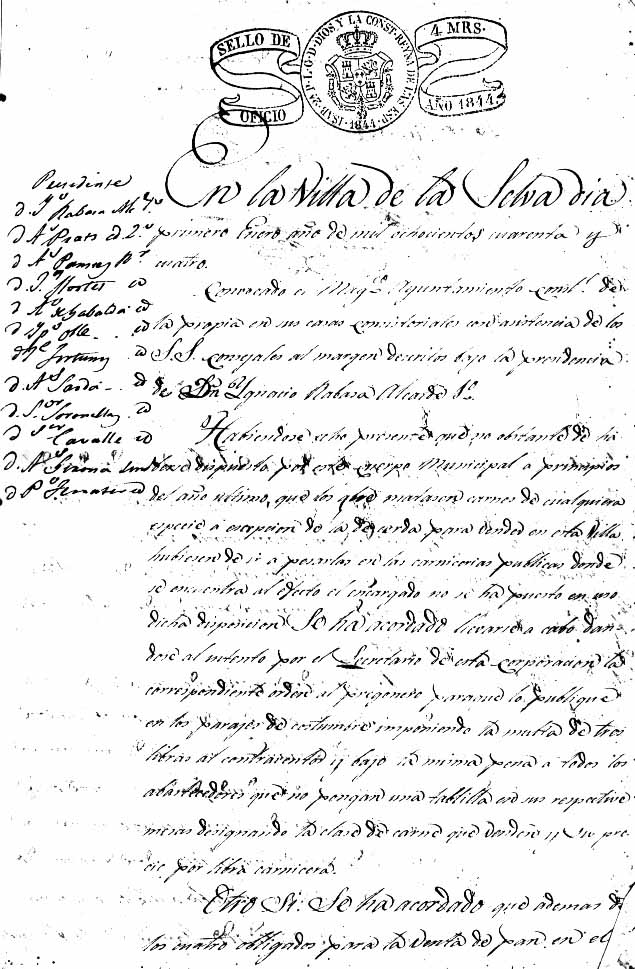 SELLO DE OFICIO
ISAB. 2ª P. L. G. D. DIOS Y LA CONST. REYNA DE LAS ESP. 1844.
4 MRS.
AÑO 1844.
Presidente
d Ygº Rabasa Alc
d Aº Prats id 2º
d Aº
d
d Aº id
d Ygº Olle id
d id
d Aº Sardá id
d id
d Cavalle id
d Aº
d Pº
En la Villa de la Selva dia
primero Enero año de mil ochocientos cuarenta y
cuatro.
Convocado el Magº Ayuntamiento Constl. de
la propia en sus casas consistoriales con asistencia de los
S.S. Consejales al margen descritos bajo la presidencia
de Dn Ygnacio Rabasa Alcalde 1º
Habiendose echo presente que no obstante de ha
verse dispuesto por este Cuerpo Municipal a principios
del año ultimo, que los que matasen carnes de cualquiera
especie a escepcion de la de cerda para vender en esta Villa
hubiesen de ir a pesarlas en las carnicerias publicas donde
se encuentra al efecto el encargado no se ha puesto en uso
dicha disposicion Se ha acordado llevarse a cabo dan
dose al intento por el Secretario de esta corporacion la
correspondiente orden al pregonero paraque lo publique
en los parajes de costumbre imponiendo la multa de tres
libras al contraventor y bajo la misma pena a todos los
abastecedores que no pongan una tablilla en sus respective
mesas designando la clase de carne que venden y su pre
cio por libra carnicera.
Otro Si: Se ha acordado que ademas de
los cuatro obligados para la venta de pan en el